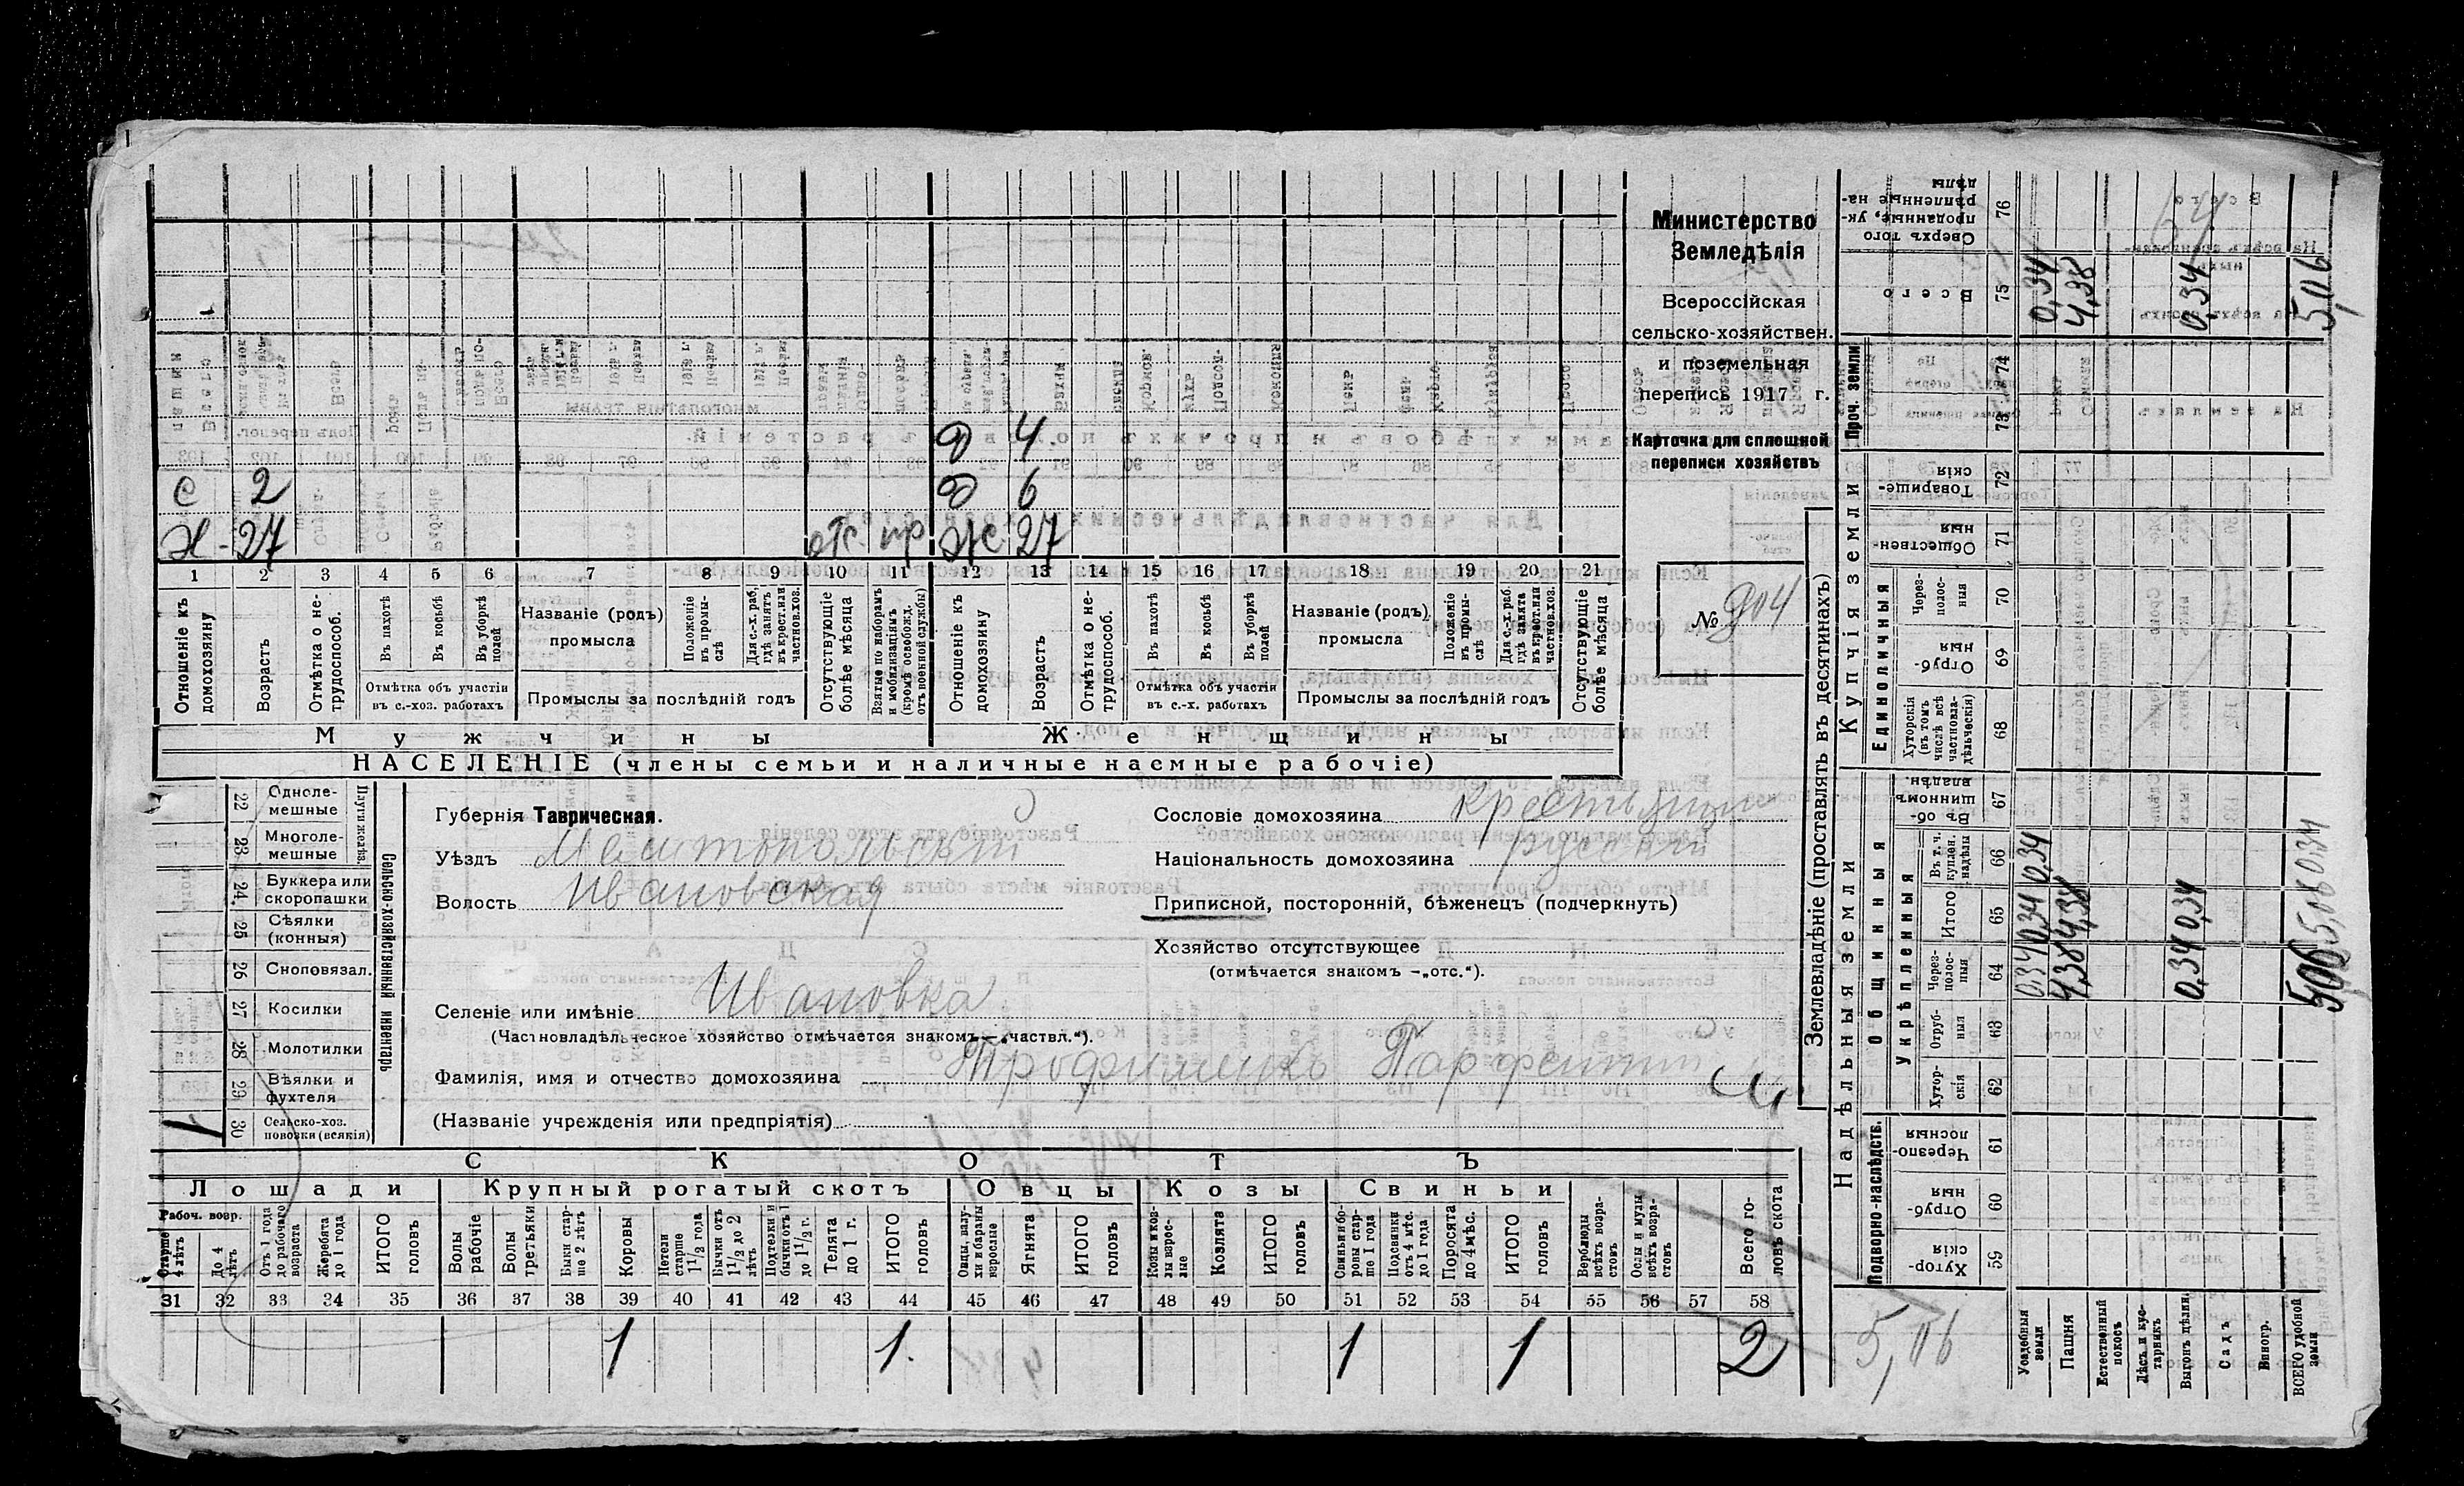 С 2
Х - 27 отс. пр
Д 4
Д 6
Ж 27
1 2 3 4 5 6 7 8 9 10 11 12 13 14 15 16 17 18 19 20 21
Отношеніе къ домохозяину
Возрастъ
Отмѣтка о нетрудоспособ.
Въ пахотѣ
Въ косьбѣ
Въ уборкѣ полей
Отмѣтка объ участіи въ с.-хоз. работахъ
Названіе (родъ) промысла
Положеніе въ промыслѣ
Для с.-х. раб. гдѣ занятъ въ крест. или частнов. хоз.
Промыслы за послѣдній годъ
Отсутствующіе болѣе мѣсяца
Взятые по наборамъ и мобилизаціямъ (кромѣ освобожд. отъ военной службы)
Отношеніе къ домохозяину
Возрастъ
Отмѣтка о нетрудоспособ.
Въ пахотѣ
Въ косьбѣ
Въ уборкѣ полей
Отмѣтка объ участіи въ с.-х. работахъ
Названіе (родъ) промысла
Положеніе въ промыслѣ
Для с.-х. раб. гдѣ занята въ крест. или частнов. хоз.
Промыслы за послѣдній годъ
Отсутствующіе болѣе мѣсяца
Мужчины Женщины
НАСЕЛЕНІЕ (члены семьи и наличные наемные рабочіе)
Министерство
Земледѣлія
Всероссійская
сельско-хозяйствен.
и поземельная
перепись 1917 г.
Карточка для сплошной
переписи хозяйствъ
№ 904
Сельско-хозяйственный инвентарь
Плуги желѣз.
22 Однолемешные
23 Многолемешные
24 Буккера или скоропашки
25 Сѣялки (конныя)
26 Сноповязал.
27 Косилки
28 Молотилки
29 Вѣялки и фухтеля
1 30 Сельско-хоз. повозки (всякія)
Губернія Таврическая.
Уѣздъ Мелитопольскій
Волость Ивановская
Селеніе или имѣніе Ивановка
(Частновладѣльческое хозяйство отмѣчается знакомъ—„частвл.“).
Сословіе домохозяина крестьянин
Національность домохозяина русскій
Приписной, посторонній, бѣженецъ (подчеркнуть)
Хозяйство отсутствующее
(отмѣчается знакомъ —„отс.“).
Фамилія, имя и отчество домохозяина Трофименко Парфентій
(Названіе учрежденія или предпріятія)
СКОТЪ
Лошади Крупный рогатый скотъ Овцы Козы Свиньи
Рабоч. возр.
Старше 4 лѣтъ
До 4 лѣтъ
Отъ 1 года до рабочаго возраста
Жеребята до 1 года
ИТОГО головъ
Волы рабочіе
Волы третьяки
Быки старше 2 лѣтъ
Коровы
Нетели старше 1½ года
Бычки отъ 1½ до 2 лѣтъ
Подтелки и бычки отъ 1 до 1½ г.
Телята до 1 г.
ИТОГО головъ
Овцы, валухи и бараны взрослые
Ягнята
ИТОГО головъ
Козы и козлы взрослые
Козлята
ИТОГО головъ
Свиньи и боровы старше 1 года
Подсвинки отъ 4 мѣс. до 1 года
Поросята до 4 мѣс.
ИТОГО головъ
Верблюды всѣхъ возрастовъ
Ослы и мулы всѣхъ возрастовъ
Всего головъ скота
31 32 33 34 35 36 37 38 39 40 41 42 43 44 45 46 47 48 49 50 51 52 53 54 55 56 57 58
1 1. 1 1 2
Землевладѣніе (проставлять въ десятинахъ)
Надѣльныя земли Купчія земли Проч. земли
Подворно-наслѣдств. Общинныя Единоличныя
Укрѣпленныя
59 Хуторскія
60 Отрубныя
61 Черезполосныя
62 Хуторскія
63 Отрубныя
64 Черезполосныя
65 Итого
66 Въ т. ч. куплен. надѣлы
67 Въ общинномъ владѣн.
68 Хуторскія (въ томъ числѣ всѣ частновладѣльческія)
69 Отрубныя
70 Черезполосныя
71 Общественныя
72 Товарищескія
73
74
75 Всего
76 Сверхъ того проданные, укрѣпленные надѣлы
Усадебныя земли 0,34 0,34 0,34 0,34
Пашня 4,38 4,38 4,38
Естественный покосъ
Лѣсъ и кустарникъ
Выгонъ цѣлин. 0,34 0,34 0,34
Садъ
Виногр.
ВСЕГО удобной земли 5,06 5,06 0,34 5,06
5,06